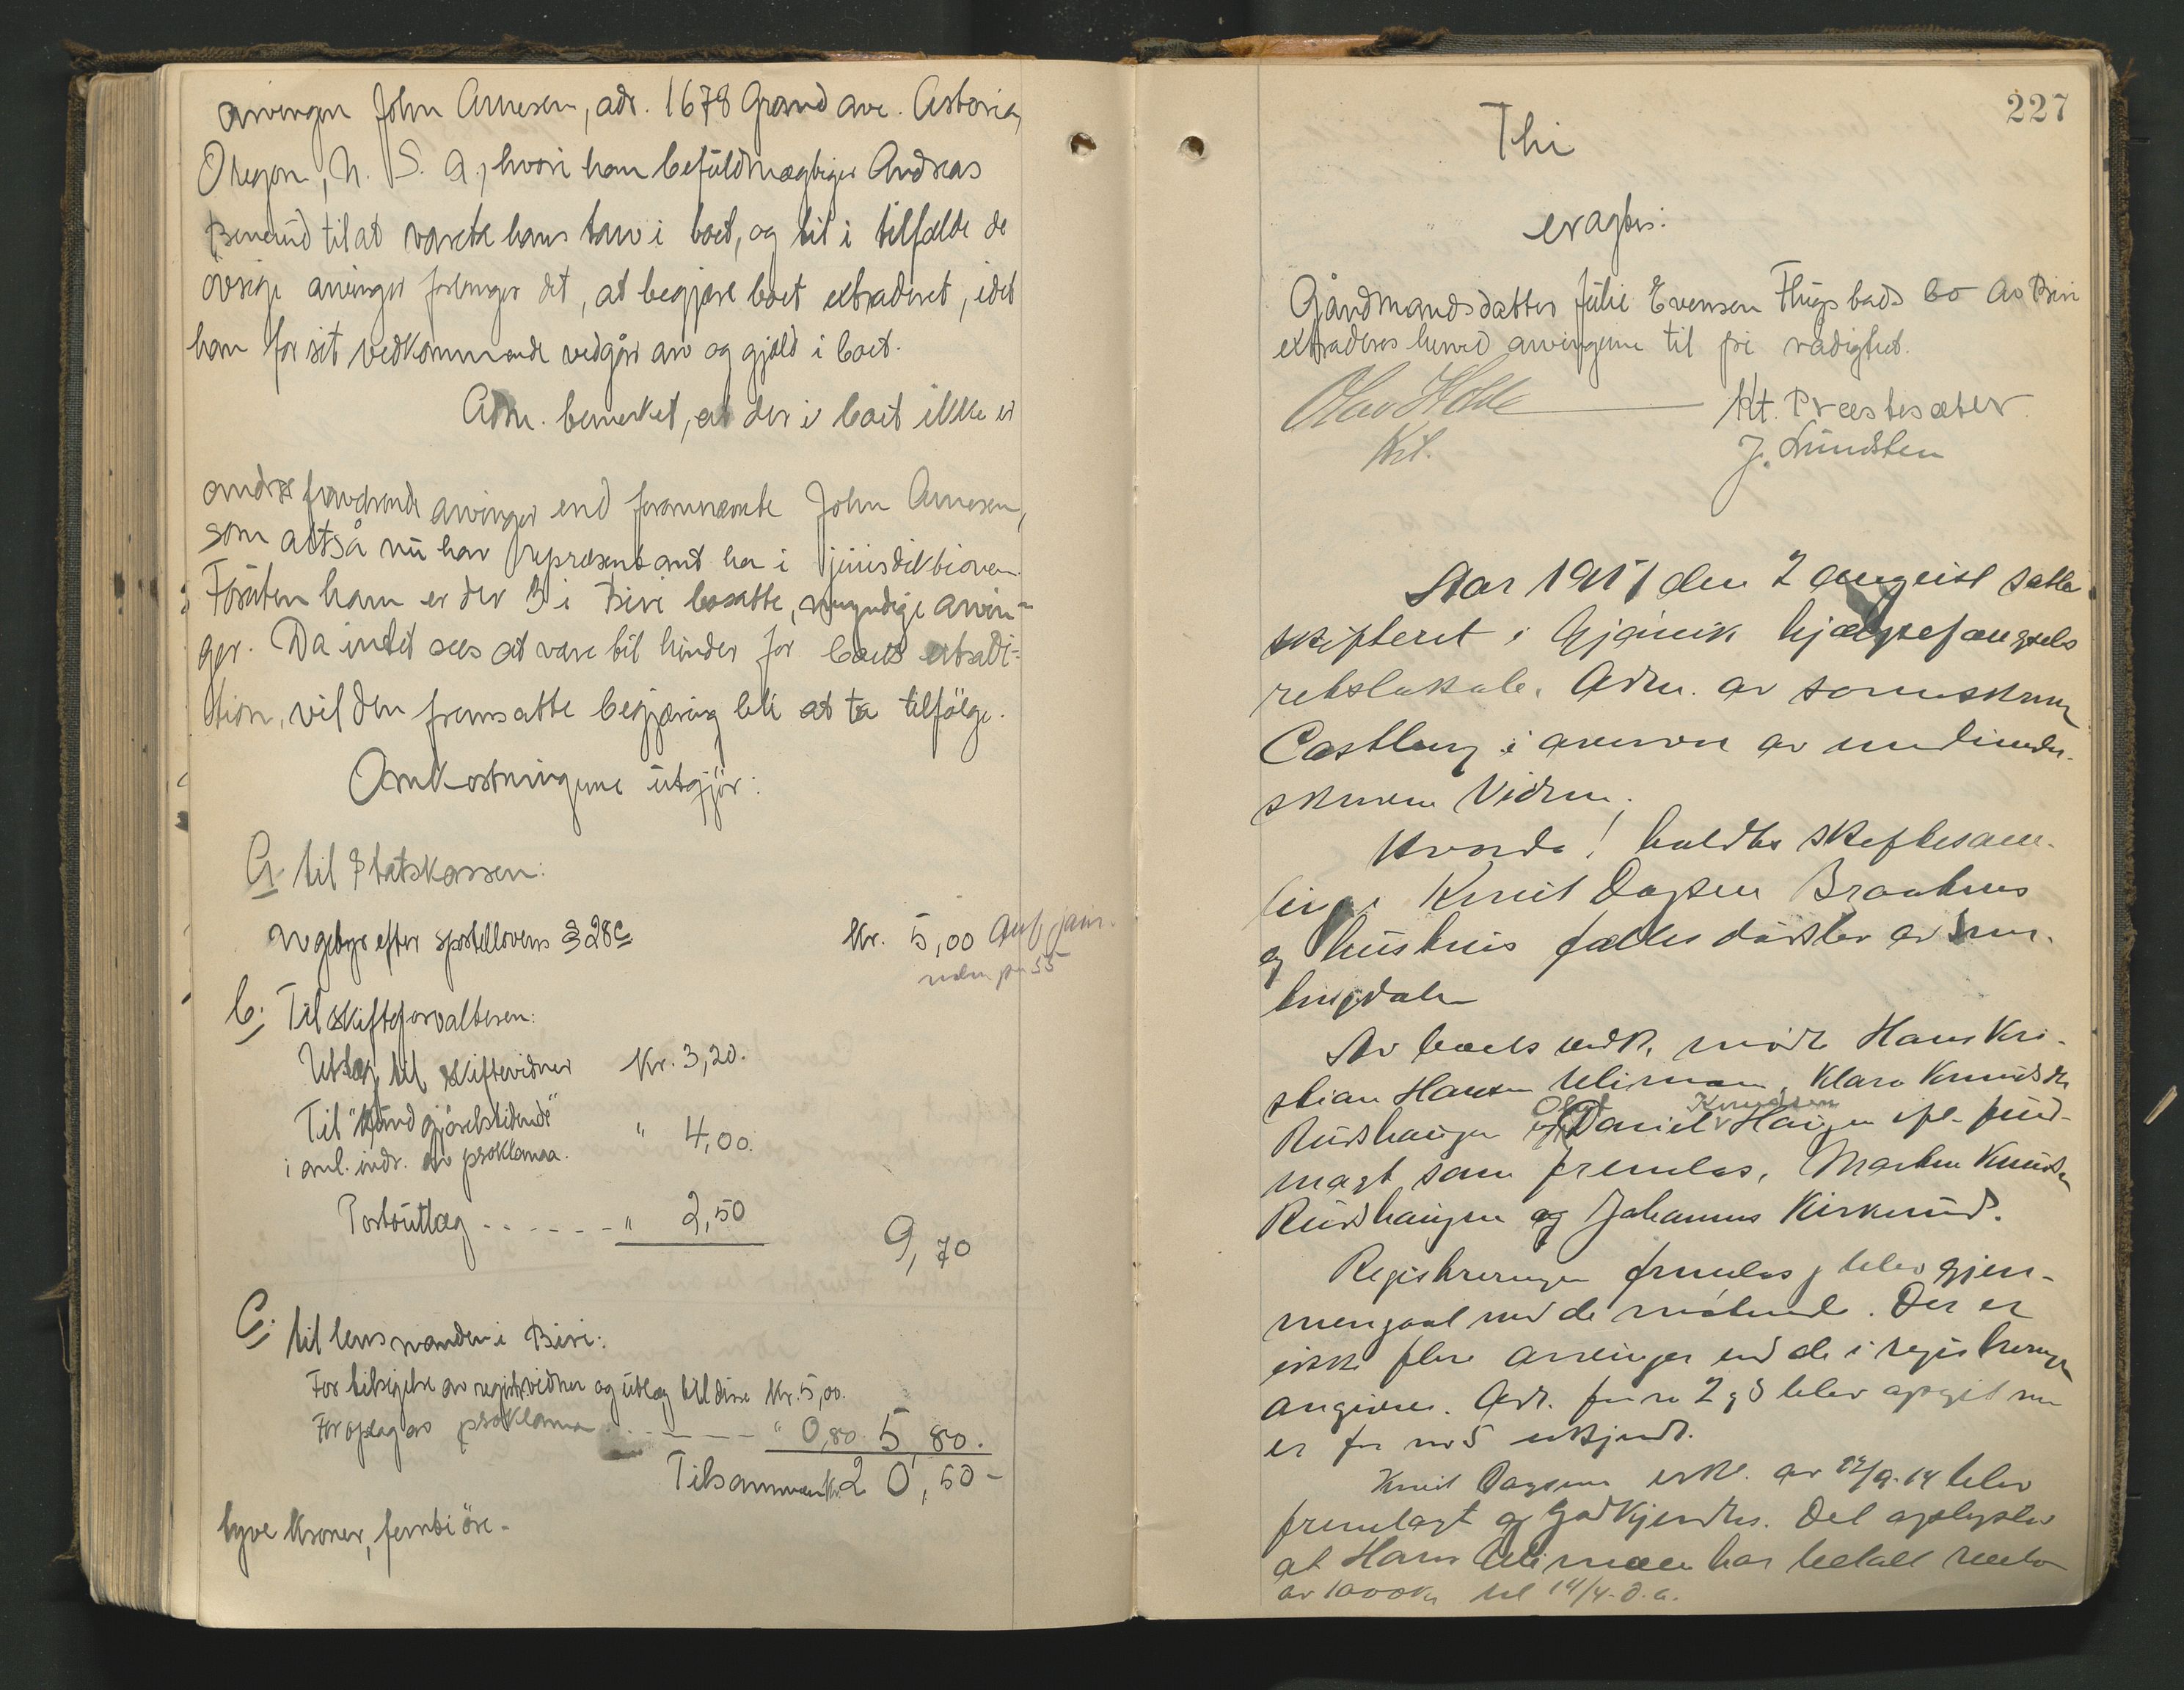 arvingen John Arnesen, adr. 1678 Grand ave. Astoria,
Oregon, U. S. A., hvori han befuldmægtiger Andreas
til at vareta hans tarv i boet, og til i tilfælde de
øvrige arvinger forlanger det, at begjære boet extraderet, idet
han for sit vedkommende vedgår arv og gjæld i boet.
Adm. bemerket, at der i boet ikke er
andre fraværende arvinger end forannævnte John Arnesen,
som altså nu har repræsentant her i jurisdiktionen.
Foruten ham er der 3 i Biri bosatte, myndige arvin-
ger. Da intet sees at være til hinder for boets extradi-
tion, vil den fremsatte begjæring bli at ta tilfølge.
Omkostningerne utgjør:
A til Statskassen:
Arvgebyr efter sportellovens § 28 c
kr. 5,00
b. Til skifteforvalteren:
Utlæg til skiftevidner Kr. 3,20.
Til "Kundgjørelstidende"
i anl. indr. av proklama. " 4,00.
Portoutlæg - - - - - - " 2,50
9,70
C. til lensmanden i Biri:
For tilsigelse av registr.vidner og utlæg til disse kr. 5,00.
For oplag av proklama - - - - " 0,80 5,80.
Tilsammen kr. 20,50 -
tyve kroner, femti øre -
227
Thi
eragtes:
Gårdmandsdatter Julie Evensen Flugstads bo av Biri
extraderes herved arvingerne til fri rådighet.
Kt. Præstesæter
kst.
J. Lundsten
Aar 1917 den 2 august sattes
skifteret i Gjøvik hjælpefængsels
retslokale. Adm. av sorenskriver
Castberg i nærvær av
vidner.
Hvorda! holdtes skiftesam-
ling i Knut Dagsen Braatens
og hustrus fælles dødsbo av
Av boets vedk. møtte Hans Kri-
stian Hansen Ulimoen, Klara Knudsdtr
Olaf Knudsen
Rudshaugen og Daniel Haugen ifl. fuld-
magt som fremlas, Martin Knudsen
Rudshaugen og Johannes Kirkerud.
Registreringen fremlas og blev gjen-
nemgaat med de møtende. Der er
ikke flere arvinger end de i registreringen
angivne. Adr. for no 2 g 3 blev opgit men
er for no 5 ukjendt.
Knut Dagsens erkl. av
fremlagt og godkjendtes. Det oplystes
at Hans Ulimoen har betalt renter
av 1000 kr til 14/4. d. a.